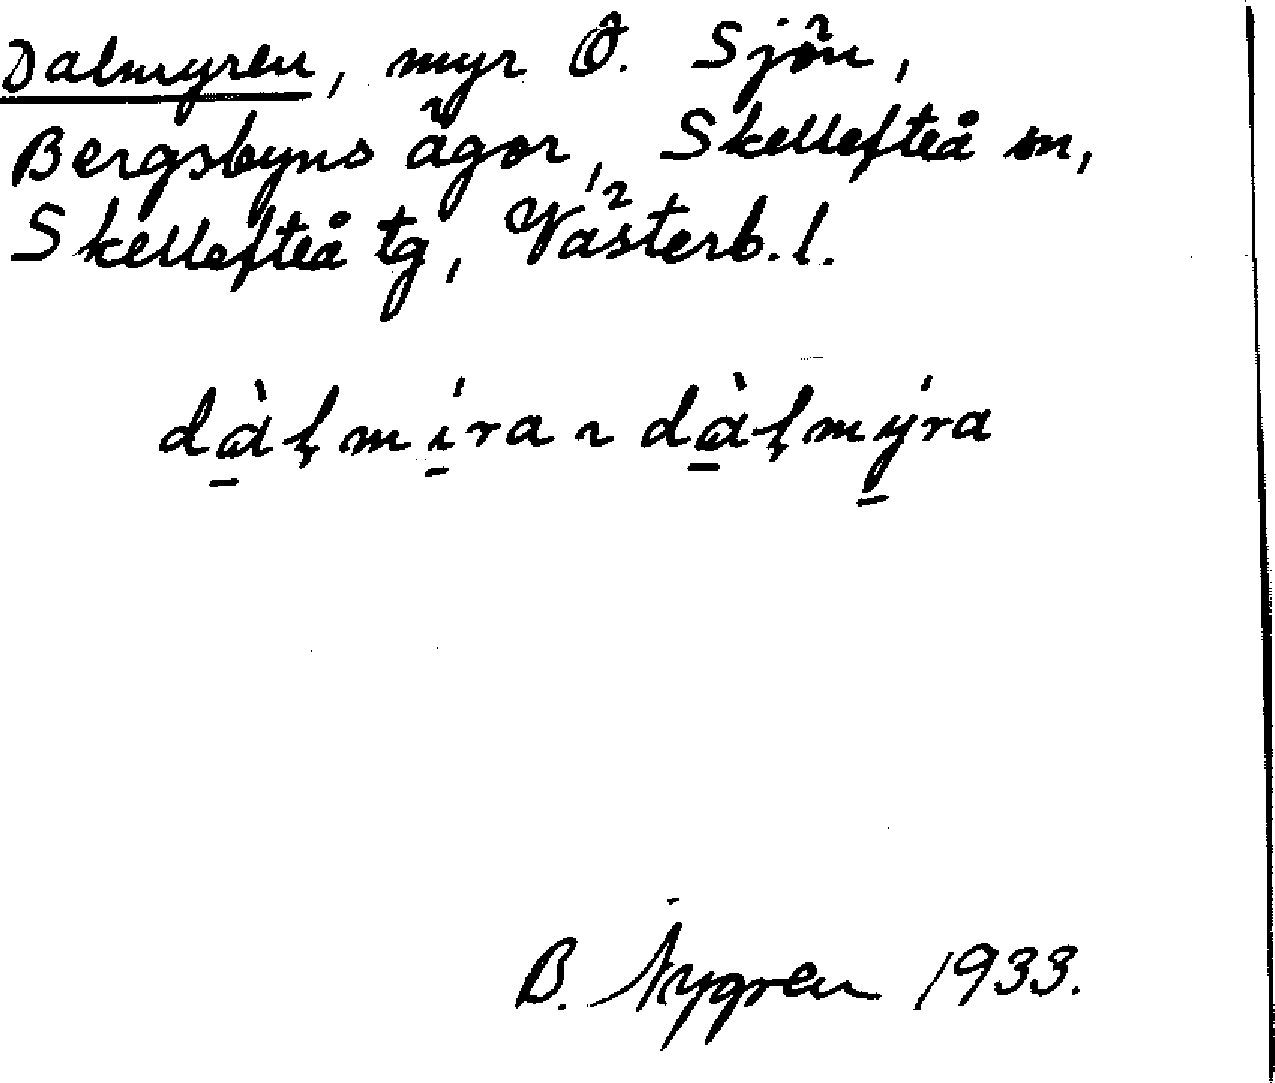 Dalmyren, myr Ö. Sjön,
Bergsbyns ägor, Skellefteå sn,
Skellefteå tg, Västerb. l.
dàḷmíra ~ dàḷmýra
B. Nygren 1933.